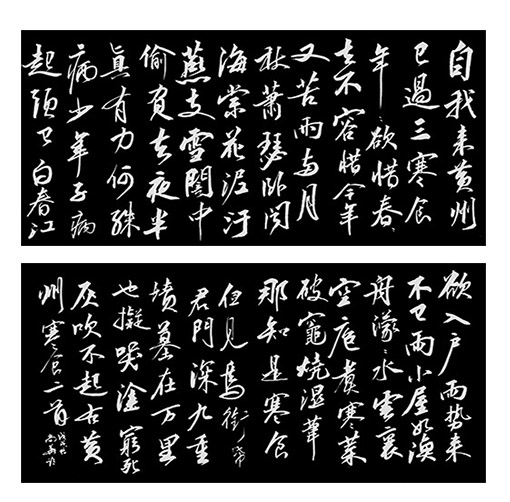 自我来黄州
已過三寒食
年〻欲惜春〻
去不容惜今年
又苦雨兩月
秋蕭瑟卧聞
海棠花泥汙
燕支雪闇中
偷負去夜半
真有力何殊
病少年子病
起須已白春江
欲入户雨勢来
不已雨小屋如漁
舟濛〻水雲裏
空庖煮寒菜
破竈燒濕葦
那知是寒食
但見烏銜帋
君門深九重
墳墓在万里
也擬哭塗窮死
灰吹不起右黄
州寒食二首